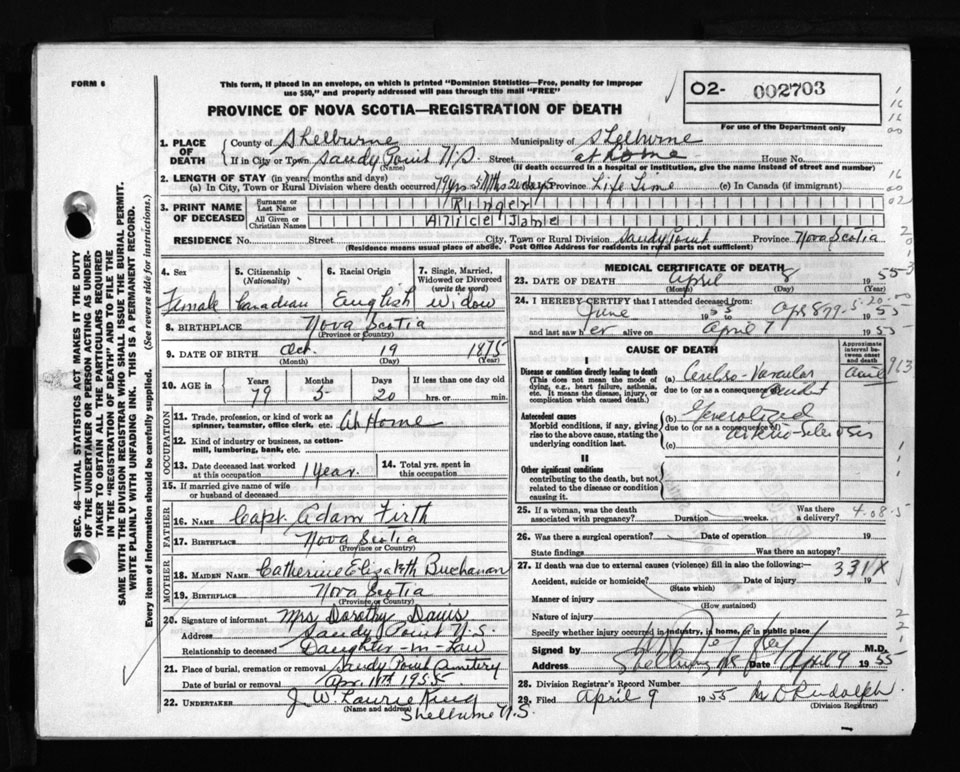 FORM 6
This form, if placed in an envelope, on which is printed "Dominion Statistics—Free, penalty for improper
use $50," and properly addressed will pass through the mail "FREE"
PROVINCE OF NOVA SCOTIA—REGISTRATION OF DEATH
02- 002703
For use of the Department only
SEC. 46—VITAL STATISTICS ACT MAKES IT THE DUTY
OF THE UNDERTAKER OR PERSON ACTING AS UNDER-
TAKER TO OBTAIN ALL THE PARTICULARS REQUIRED
IN THE "REGISTRATION OF DEATH" AND TO FILE THE
SAME WITH THE DIVISION REGISTRAR WHO SHALL ISSUE THE BURIAL PERMIT.
WRITE PLAINLY WITH UNFADING INK. THIS IS A PERMANENT RECORD.
Every item of information should be carefully supplied. (See reverse side for instructions.)
1. PLACE OF DEATH County of Shelburne Municipality of Shelburne
If in City or Town Sandy Point N.S. Street at home House No.
(Name) (If death occurred in a hospital or institution, give the name instead of street and number)
2. LENGTH OF STAY (in years, months and days)
(a) In City, Town or Rural Division where death occurred 79 yrs 5 Mths 20 days Province Life Time (c) In Canada (if immigrant)
3. PRINT NAME OF DECEASED Surname or Last Name Ringer
All Given or Christian Names Anice Jane
RESIDENCE No. Street City, Town or Rural Division Sandy Point Province Nova Scotia
(Residence means usual place of abode. Post Office Address for residents in rural parts not sufficient)
4. Sex Female
5. Citizenship (Nationality) Canadian
6. Racial Origin English
7. Single, Married, Widowed or Divorced (write the word) Widow
8. BIRTHPLACE Nova Scotia
(Province or Country)
9. DATE OF BIRTH Oct. 19 1875
(Month) (Day) (Year)
10. AGE in Years Months Days If less than one day old
79 5 20 hrs. or min.
OCCUPATION
11. Trade, profession, or kind of work as
spinner, teamster, office clerk, etc. At Home
12. Kind of industry or business, as cotton-
mill, lumbering, bank, etc.
13. Date deceased last worked
at this occupation 1 Year.
14. Total yrs. spent in
this occupation
15. If married give name of wife
or husband of deceased
FATHER
16. NAME Capt. Adam Firth
17. BIRTHPLACE Nova Scotia
(Province or Country)
MOTHER
18. MAIDEN NAME Catherine Elizabeth Buchanan
19. BIRTHPLACE Nova Scotia
(Province or Country)
20. Signature of informant Mrs Dorothy Davis
Address Sandy Point N.S.
Relationship to deceased Daughter-in-Law
21. Place of burial, cremation or removal Sandy Point Cemetery
Date of burial or removal Apr. 11th 1955
22. UNDERTAKER J. W. Laurie King
(Name and address)
Shelburne N.S.
MEDICAL CERTIFICATE OF DEATH
23. DATE OF DEATH April 8 1955
(Month) (Day) (Year)
24. I HEREBY CERTIFY that I attended deceased from:
June 1955 to Apr 8 1955
and last saw her alive on April 7 1955
CAUSE OF DEATH
Approximate interval between onset and death
I
Disease or condition directly leading to death
(This does not mean the mode of
dying, e.g., heart failure, asthenia,
etc. It means the disease, injury, or
complication which caused death.)
(a) Cerebro-Vascular
due to (or as a consequence of) accident
Antecedent causes
Morbid conditions, if any, giving
rise to the above cause, stating the
underlying condition last.
(b) Generalized
due to (or as a consequence of) arterio-sclerosis
(c)
II
Other significant conditions
contributing to the death, but not
related to the disease or condition
causing it.
25. If a woman, was the death
associated with pregnancy? Duration weeks. Was there
a delivery?
4-08-5
26. Was there a surgical operation? Date of operation 19
State findings Was there an autopsy?
27. If death was due to external causes (violence) fill in also the following: 331X
Accident, suicide or homicide? Date of injury 19
(State which)
Manner of injury
(How sustained)
Nature of injury
Specify whether injury occurred in industry, in home, or in public place
Signed by M.D.
Address Shelburne NS Date April 9 1955
28. Division Registrar's Record Number
29. Filed April 9 1955 M D Rudolph.
(Division Registrar)